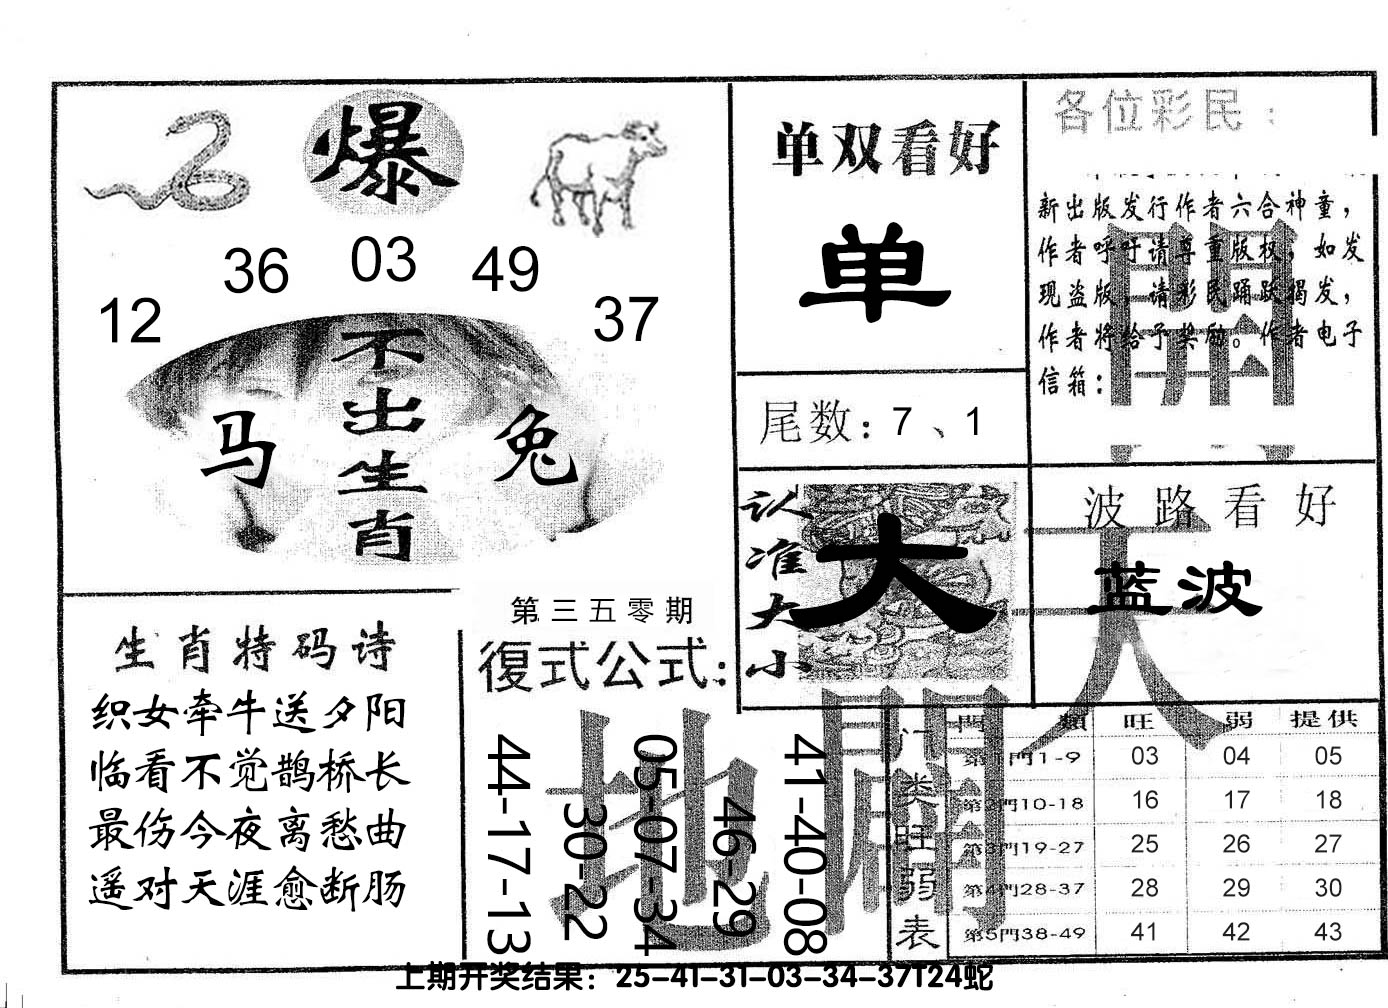 爆
12 36 03 49 37
不出生肖
马 兔
生肖特码诗
织女牵牛送夕阳
临看不觉鹊桥长
最伤今夜离愁曲
遥对天涯愈断肠
第三五零期
復式公式：
44-17-13
30-22
05-07-34
46-29
41-40-08
单双看好
单
尾数：7、1
认准大小
大
各位彩民：
新出版发行作者六合神童，
作者呼吁请尊重版权，如发
现盗版，请彩民踊跃揭发，
作者将给予奖励。作者电子
信箱：
波路看好
蓝波
天
地
门类旺弱表
門類 旺 弱 提供
第1門1-9 03 04 05
第2門10-18 16 17 18
第3門19-27 25 26 27
第4門28-37 28 29 30
第5門38-49 41 42 43
上期开奖结果：25-41-31-03-34-37T24蛇